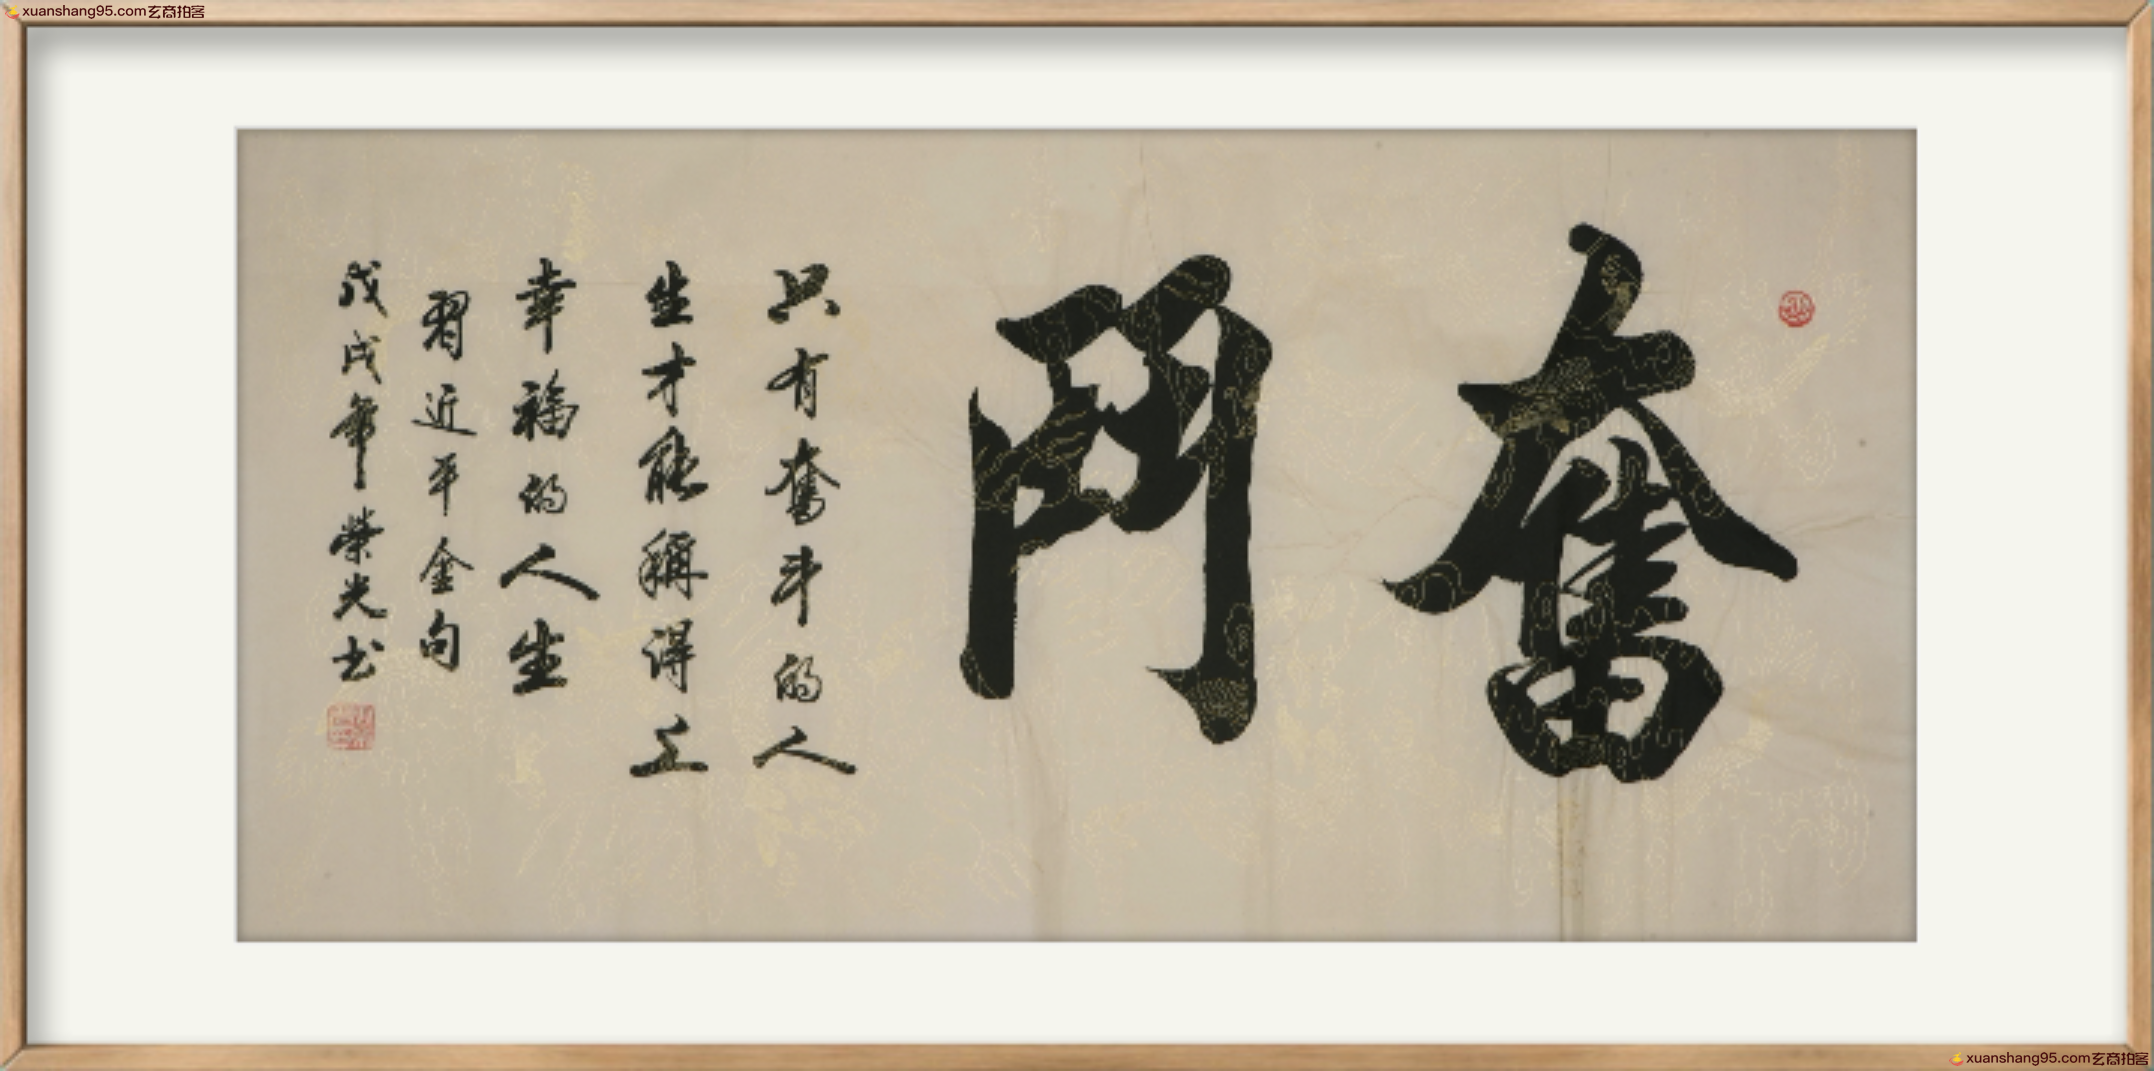 xuanshang95.com玄商拍客
奮鬥
只有奮斗的人
生才能稱得上
幸福的人生
習近平金句
戊戌年榮光书
xuanshang95.com玄商拍客